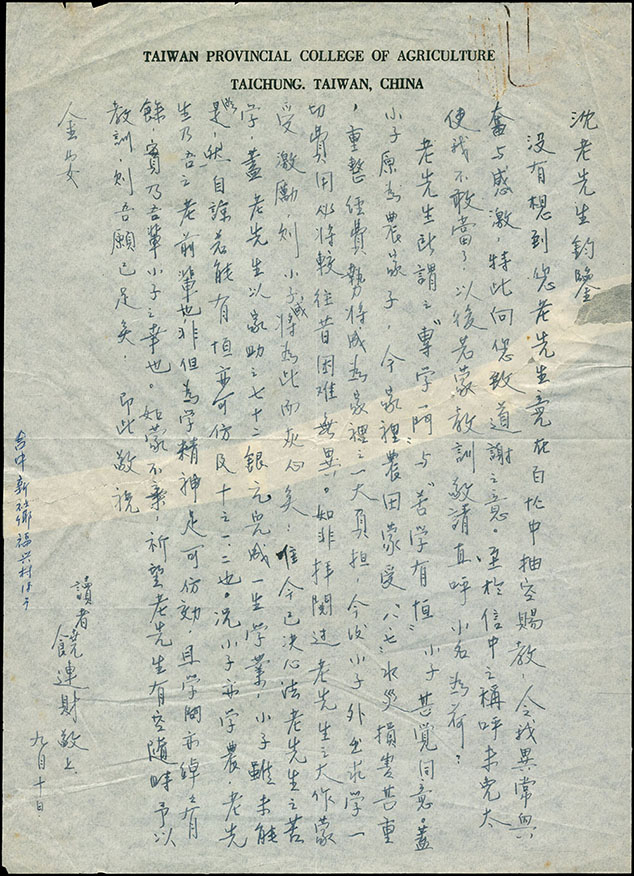 TAIWAN PROVINCIAL COLLEGE OF AGRICULTURE
TAICHUNG. TAIWAN, CHINA
沈老先生鈞鑒
没有想到您老先生竟在百忙中抽空賜教，令我異常興
奮与感激，特此向您致道謝之意。至於信中之稱呼未免太
使我不敢當了，以後若蒙教訓敬請直呼小名為荷？
老先生所謂之"專学問"与"苦学有恒"小子甚覺同意。蓋
小子原為農家子，今家裡農田蒙受"八七"水災損害甚重
，重整經費勢將成為家裡之一大負担，今後小子外出求学一
切費用必將較往昔困难無異。如非拜閱過老先生之大作蒙
受激勵，則小子或將為此而灰心矣！唯今已决心法老先生之苦
学，蓋老先生以家助之七十二銀元完成一生学業，小子雖未能
如是，然自諒若能有恒亦可仿及十之一二也。况小子亦学農，老先
生乃吾之老前輩也，非但為学精神足可仿効，且学問亦綽々有
餘，實乃吾輩小子之幸也。如蒙不棄，祈望老先生有空隨時予以
教訓，則吾願已足矣． 即此敬祝
金安
讀者
饒連財敬上．
九月十日
台中新社鄉福兴村